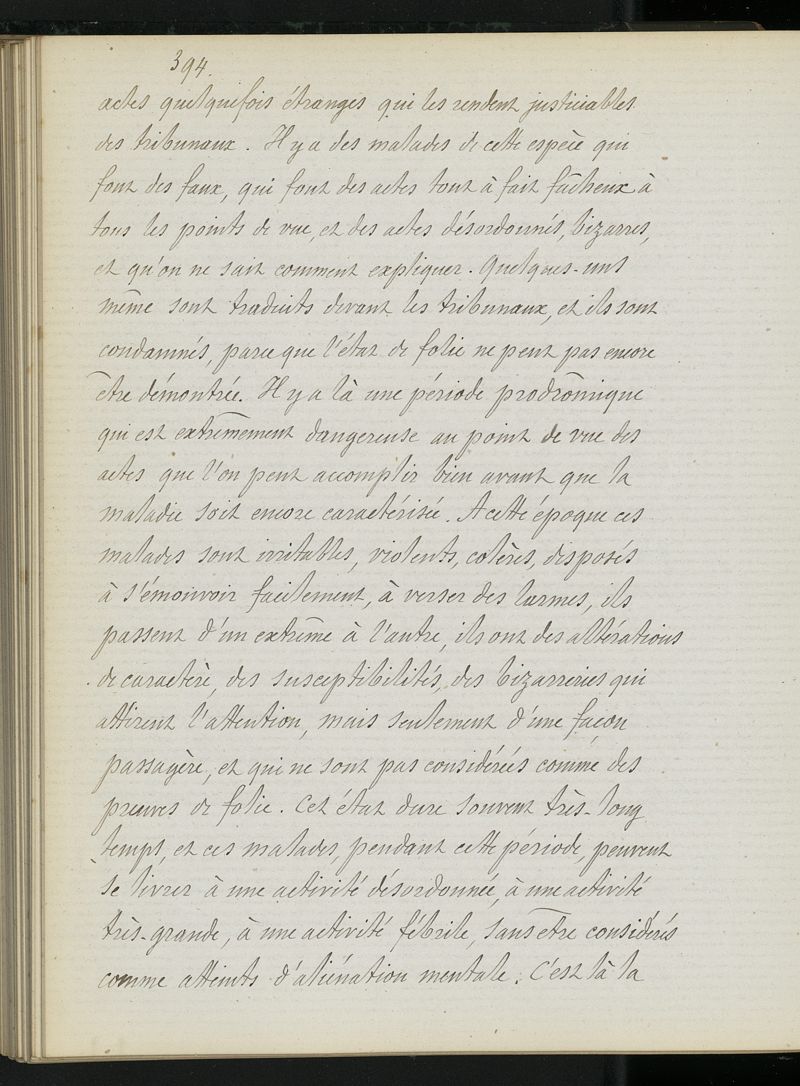 394.
actes quelquefois étranges qui les rendent justiciables
des tribunaux. Il y a des malades de cette espèce qui
font des faux, qui font des actes tout à fait fâcheux à
tous les points de vue, et des actes désordonnés, bizarres,
et qu'on ne sait comment expliquer. Quelques-uns
même sont traduits devant les tribunaux, et ils sont
condamnés, parce que l'état de folie ne peut pas encore
être démontrée. Il y a là une période prodrômique
qui est extrêmement dangereuse au point de vue des
actes que l'on peut accomplir bien avant que la
maladie soit encore caractérisée. A cette époque ces
malades sont irritables, violents, colères, disposés
à s'émouvoir facilement, à verser des larmes, ils
passent d'un extrême à l'autre, ils ont des altérations
de caractère, des susceptibilités, des bizarreries qui
attirent l'attention, mais seulement d'une façon
passagère, et qui ne sont pas considérées comme des
preuves de folie. Cet état dure souvent très-long
temps, et ces malades, pendant cette période, peuvent
se livrer à une activité désordonnée, à une activité
très-grande, à une activité fébrile, sans être considérés
comme atteints d'aliénation mentale. C'est là la